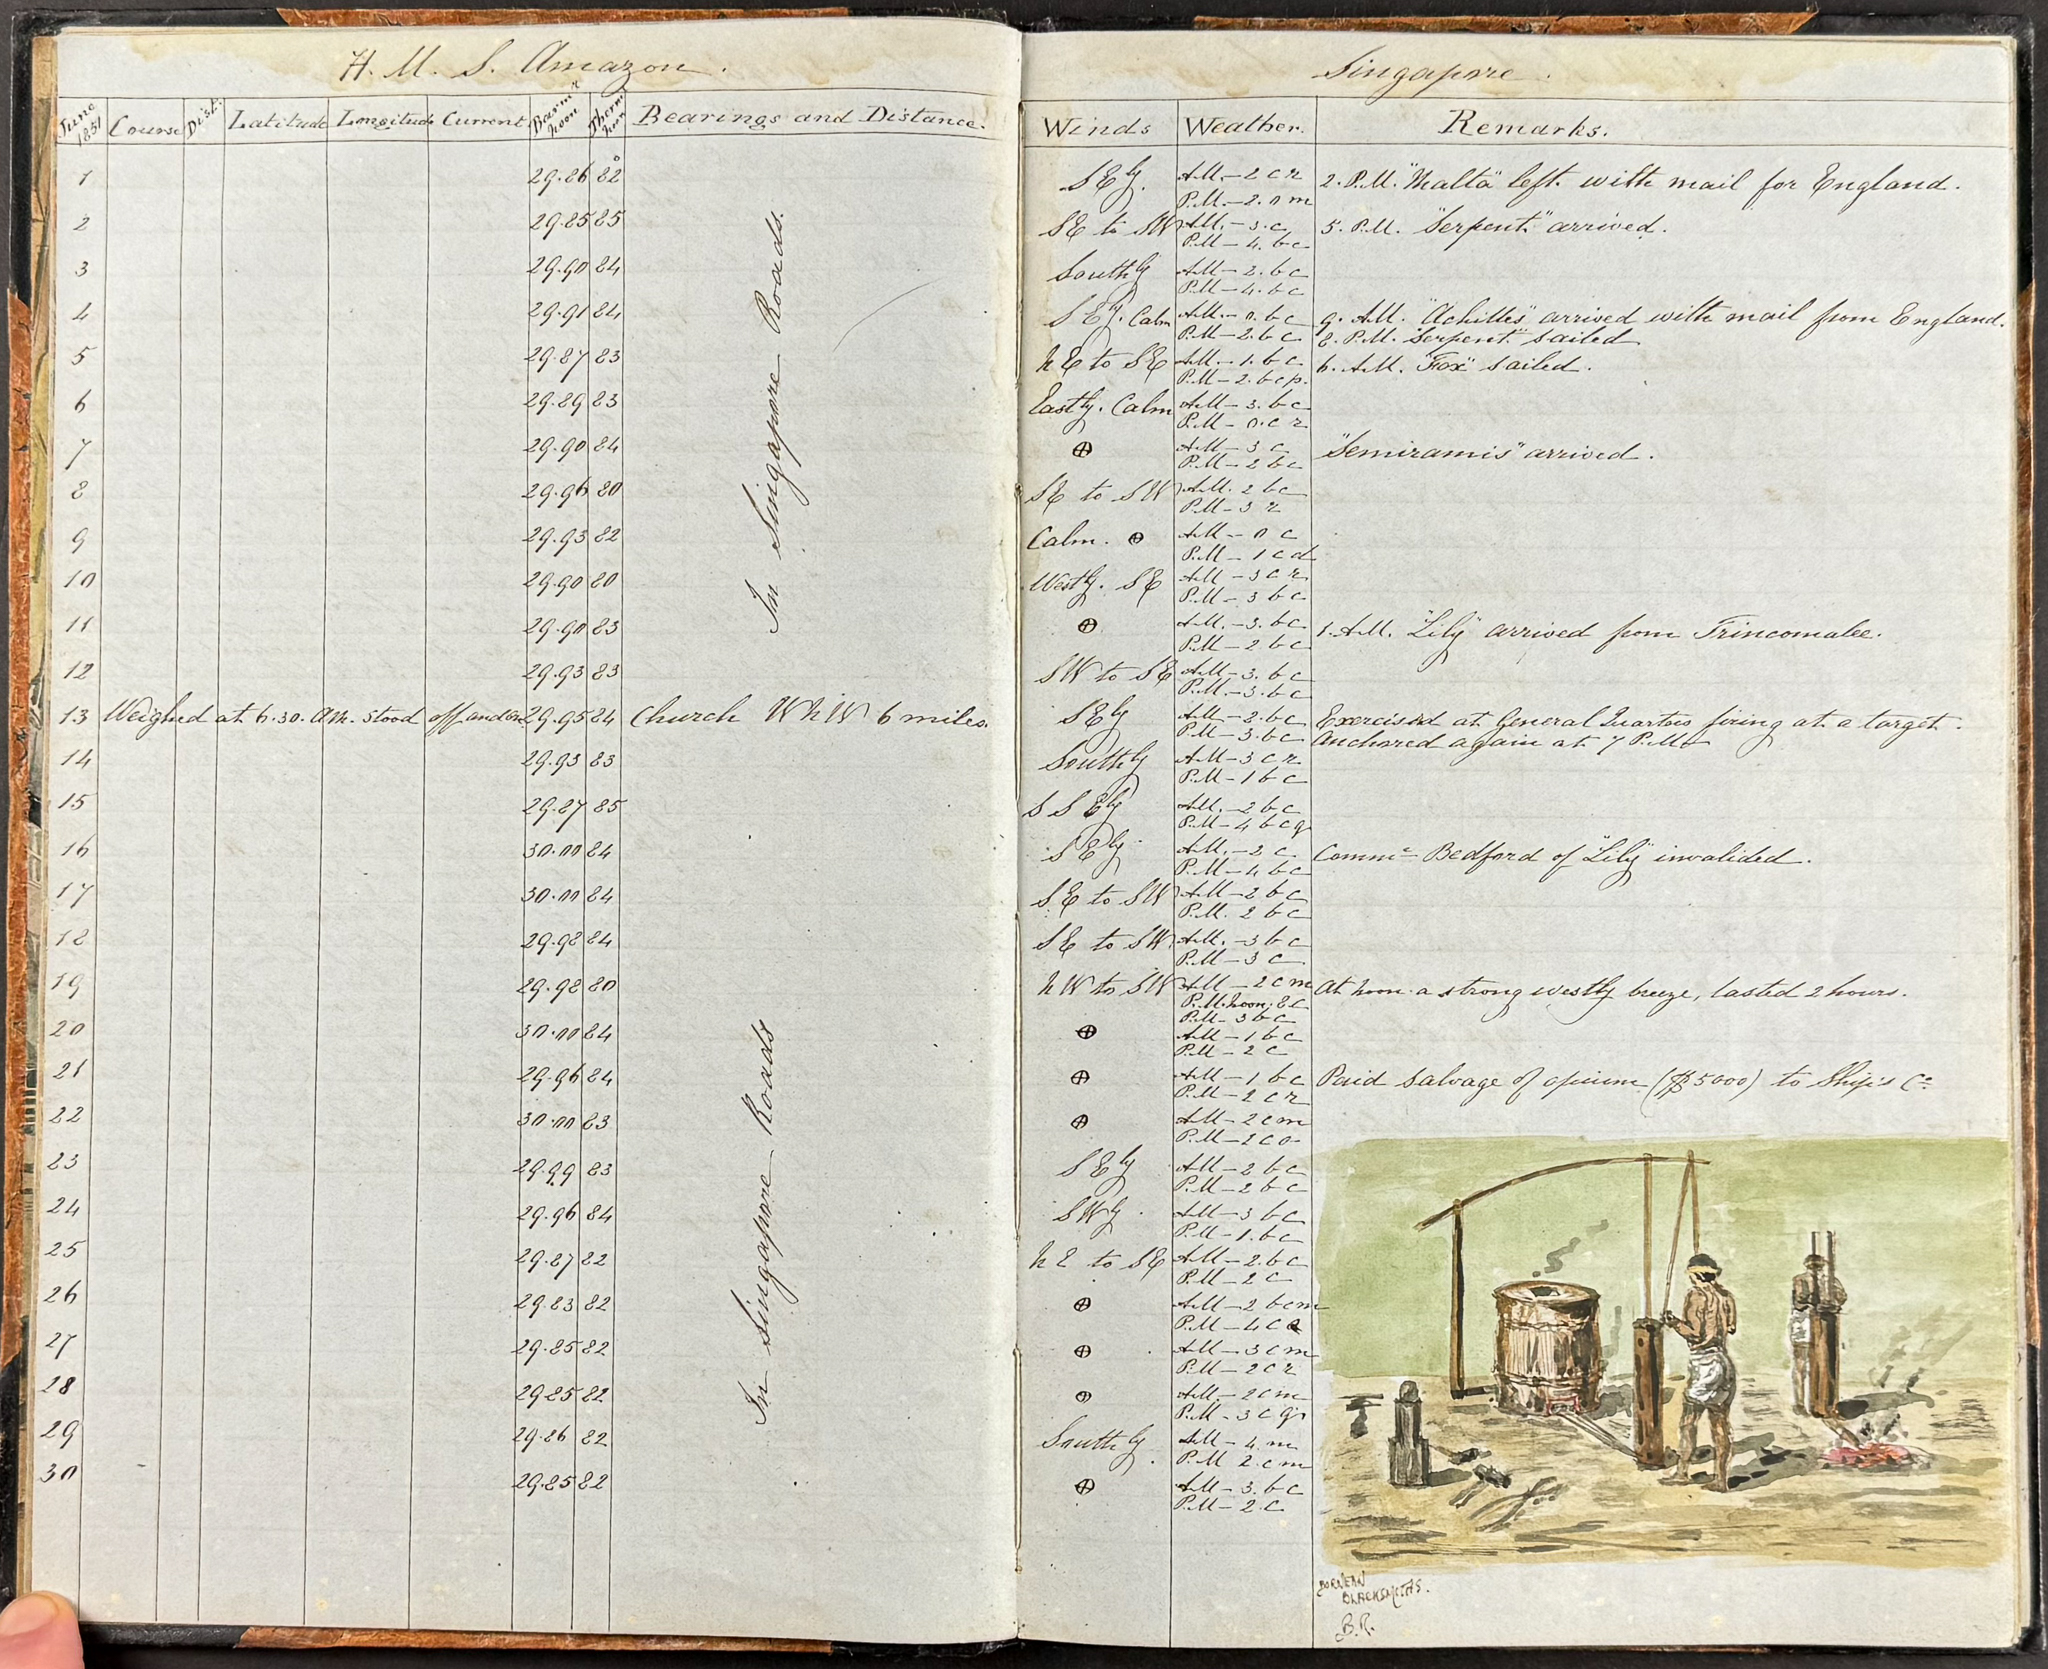 H. M. S. Amazon.
June 1851 Course Dist. Latitude Longitude Current Barmr Noon Thermr Noon Bearings and Distance.
1 29.86 82°
2 29.85 85
3 29.90 84
4 29.91 84
5 29.87 83
6 29.89 83
7 29.90 84
8 29.96 80
9 29.93 82
10 29.90 80
11 29.90 83
12 29.93 83
In Singapore Roads.
13 Weighed at 6.30. A.M. stood off and on 29.95 84 Church WNW 6 miles.
14 29.93 83
15 29.87 85
16 30.00 84
17 30.00 84
18 29.98 84
19 29.98 80
20 30.00 84
21 29.96 84
22 30.00 83
23 29.99 83
24 29.96 84
25 29.87 82
26 29.83 82
27 29.85 82
28 29.85 82
29 29.86 82
30 29.85 82
In Singapore Roads
Singapore.
Winds Weather. Remarks.
SEly. A.M. - 2 c r 2. P.M. "Malta" left with mail for England.
P.M. - 2. 0 m
SE to SW A.M. - 3. c 5. P.M. "Serpent" arrived.
P.M - 4. b c
Southly A.M - 2. b c
P.M - 4. b c
SEly. Calm A.M. - 0. b c 9. A.M. "Achilles" arrived with mail from England.
P.M - 2. b c 8. P.M. "Serpent" sailed
NE to SE A.M. - 1. b c 6. A.M. "Fox" sailed.
P.M - 2. b c p.
Eastly. Calm A.M - 3. b c
P.M - 0. c r
⊕ A.M - 3 c "Semiramis" arrived.
P.M - 2 b c
SE to SW A.M. 2 b c
P.M - 3 r
Calm. ⊕ A.M - 0 c
P.M - 1 c d
Westly. SE A.M - 3 c r
P.M - 3 b c
⊕ A.M. - 3. b c 1. A.M. "Lily" arrived from Trincomalee.
P.M - 2 b c
SW to SE A.M. - 3. b c
P.M. - 3. b c
SEly A.M - 2. b c Exercised at General Quarters firing at a target.
P.M - 3. b c Anchored again at 7 P.M.
Southly A.M - 3 c r
P.M - 1 b c
S S Ely A.M. - 2 b c
P.M - 4 b c q
SEly A.M. - 2 c Commr Bedford of "Lily" invalided.
P.M - 4 b c
SE to SW A.M - 2 b c
P.M. 2 b c
SE to SW. A.M. - 3 b c
P.M - 3 c
NW to SW A.M - 2 c m At Noon a strong westly breeze, lasted 2 hours.
P.M. Noon. 8 c
P.M - 3 b c
⊕ A.M - 1 b c
P.M - 2 c
⊕ A.M - 1 b c Paid Salvage of opium ($5000) to Ship's Co
P.M - 2 c r
⊕ A.M - 2 c m
P.M - 2 c o
SEly A.M - 2 b c
P.M - 2 b c
SWly. A.M - 3 b c
P.M - 1. b c
NE to SE A.M - 2. b c
P.M - 2 c
⊕ A.M - 2 b c m
P.M - 4 c
⊕ A.M - 3 c m
P.M - 2 c r
⊕ A.M - 2 c m
P.M - 3 c q r
Southly. A.M - 4. m
P.M 2. c m
⊕ A.M - 3. b c
P.M - 2. c
BORNEAN
BLACKSMITHS.
B.R.